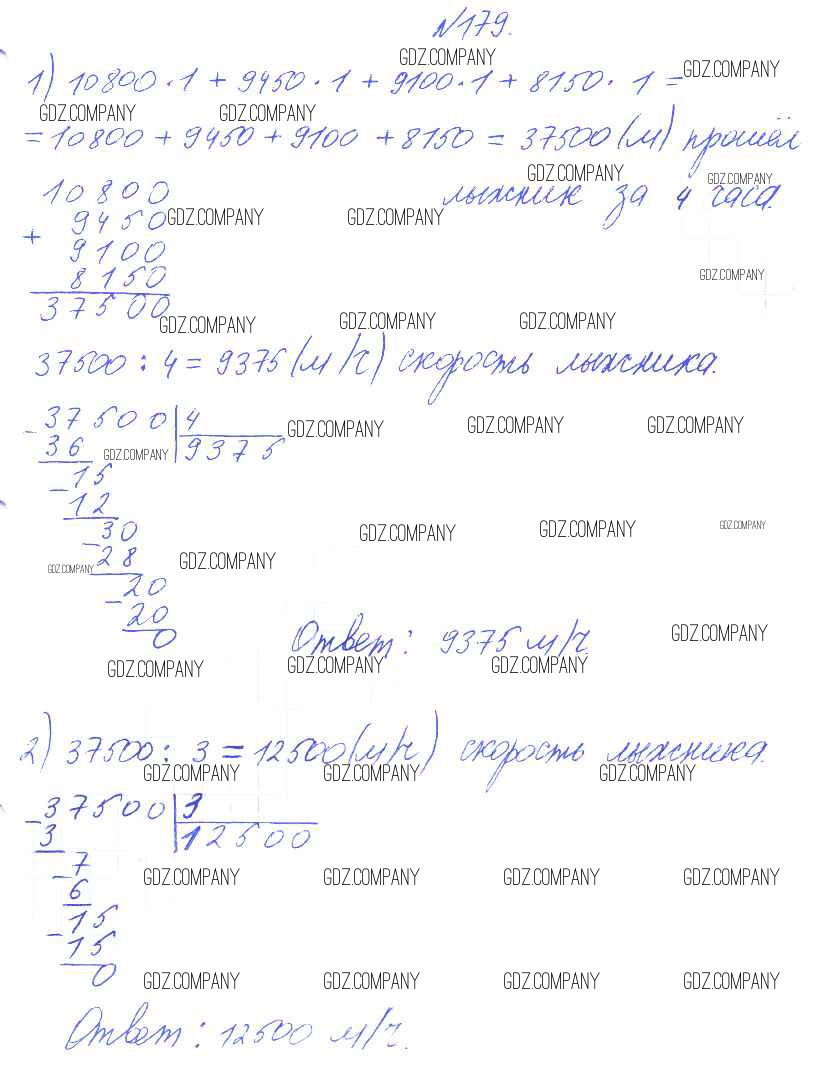 №179.
GDZ.COMPANY
1) 10800·1 + 9450·1 + 9100·1 + 8150·1 = GDZ.COMPANY
GDZ.COMPANY GDZ.COMPANY
= 10800 + 9450 + 9100 + 8150 = 37500 (м) прошёл
GDZ.COMPANY GDZ.COMPANY
10800 лыжник за 4 часа.
9450 GDZ.COMPANY GDZ.COMPANY
+
9100
8150 GDZ.COMPANY
37500
GDZ.COMPANY GDZ.COMPANY GDZ.COMPANY
37500 : 4 = 9375 (м/ч) скорость лыжника.
- 37500 | 4 GDZ.COMPANY GDZ.COMPANY GDZ.COMPANY
36 GDZ.COMPANY | 9375
- 15
12
30 GDZ.COMPANY GDZ.COMPANY GDZ.COMPANY
- 28
GDZ.COMPANY GDZ.COMPANY
- 20
20
0 Ответ: 9375 м/ч. GDZ.COMPANY
GDZ.COMPANY GDZ.COMPANY GDZ.COMPANY
2) 37500 : 3 = 12500 (м/ч) скорость лыжника.
GDZ.COMPANY GDZ.COMPANY GDZ.COMPANY
- 37500 | 3
3 | 12500
- 7
6 GDZ.COMPANY GDZ.COMPANY GDZ.COMPANY GDZ.COMPANY
- 15
15
0 GDZ.COMPANY GDZ.COMPANY GDZ.COMPANY GDZ.COMPANY
Ответ: 12500 м/ч.